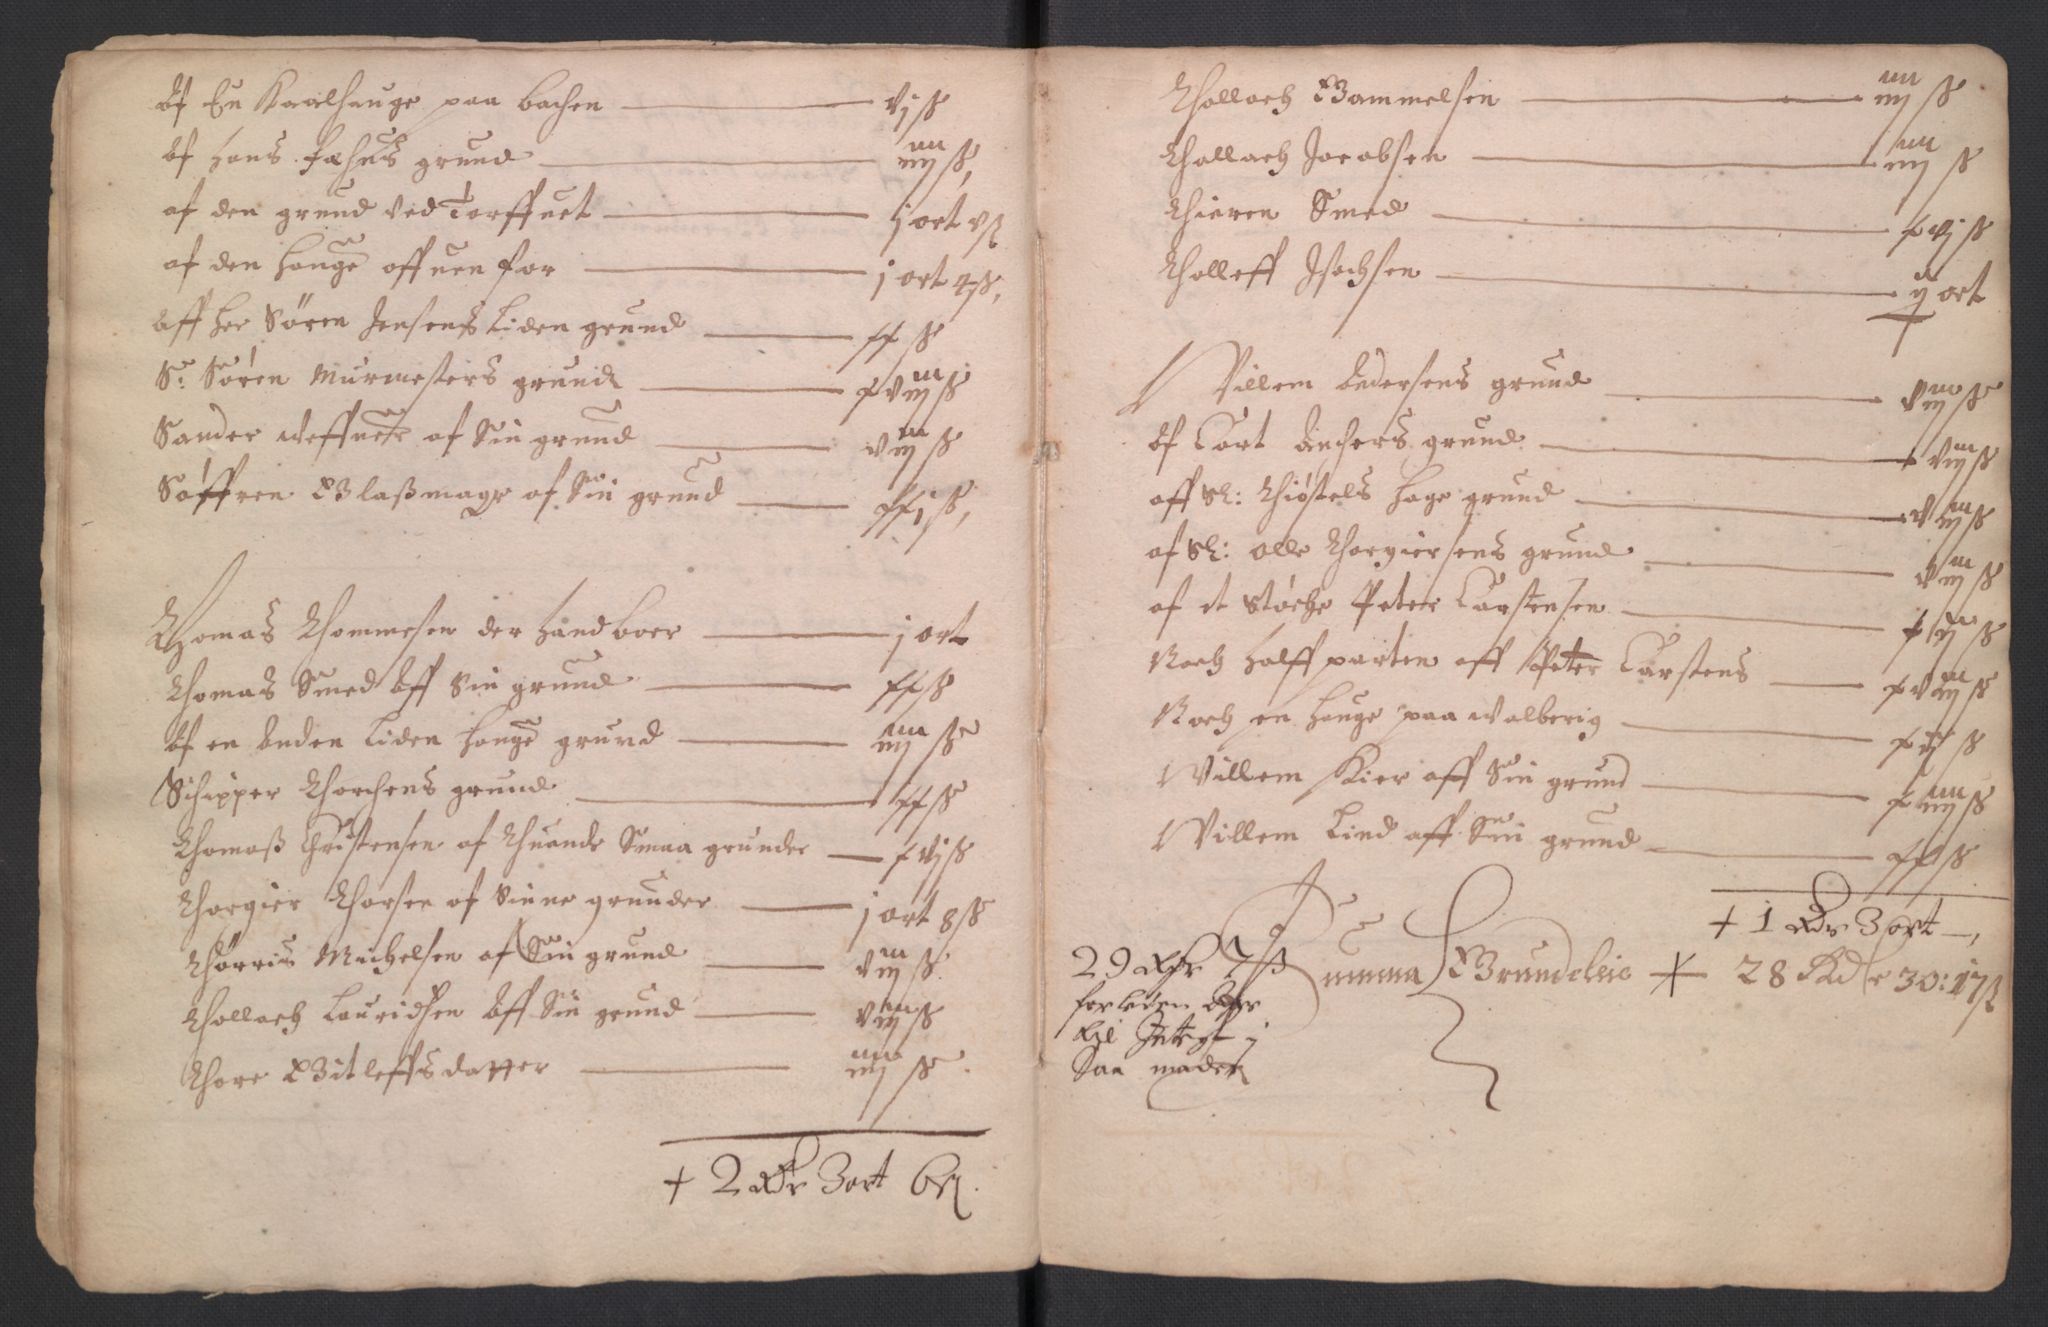 Af En Kaalhauge paa bachen — vj ß
Af hans fæhus grund — iiij ß,
af den grund ved Torffuet — j ort v ß
af den hauge offuen for — j ort 4 ß,
Aff her Sören Jensens Liden grund — xx ß
S: Sören Murmesters grund — xviij ß
Sander weffuer af Sin grund — viij ß
Söffren Glaßmager af Sin grund — xxj ß,
Thomas Thommesen der hand boer — j ort
Thomas Smed Aff Sin grund — xx ß
Af en anden Liden hauge grund — iiij ß
Schipper Thorchens grund — xx ß
Thomaß Christensen af thuende Smaa grunder — xvj ß
Thorgier Thorsen af Sinne grunder — j ort 8 ß
Thörris Michelsen af Sin grund — viij ß.
Thollach Lauridsen Aff Sin grund — viij ß
Thore Gitleffsdatter — iiij ß.
+ 2 Rdr 3 ort 6 ß.
Thollach Gammelsen — iiij ß
Thollach Jacobsen — iiij ß
Thieren Smed — xvj ß
Tholleff Isachsen — ij ort
Villem Andersens grund — viij ß
Af Cort Anchers grund — viij ß
aff Sl: Thiöstels hage grund — viij ß
af Sl: Olle Thorgiersens grund — viij ß
af it Støche Peter Carstensen — xij ß
Noch halffparten aff Peter Carstens — xviij ß
Noch en hauge paa Walberig — xij ß
Villem Kier aff Sin grund — xiiij ß
Villem Lind aff Sin grund — xx ß
+ 1 Rdr 3 ort —,
Summa Grundeleie + 28 Rdr 30: 17 ß
29 Rdr 7 ß
for
til
Saa mader